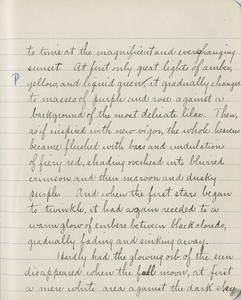 to time at the magnificent and everchanging
sunset. At first only great lights of amber,
P yellow, and liquid green, it gradually changed
to masses of purple and rose against a
background of the most delicate lilac. Then,
as if inspired with new vigor, the whole heavens
became flushed with bars and undulations
of fiery red, shading overhead into blurred
crimson and then maroon and dusky
purple. And when the first stars began
to twinkle, it had again receded to a
warm glow of embers between black clouds,
gradually fading and sinking away.
Hardly had the glowing orb of the sun
disappeared when the full moon, at first
a mere white area against the dark sky